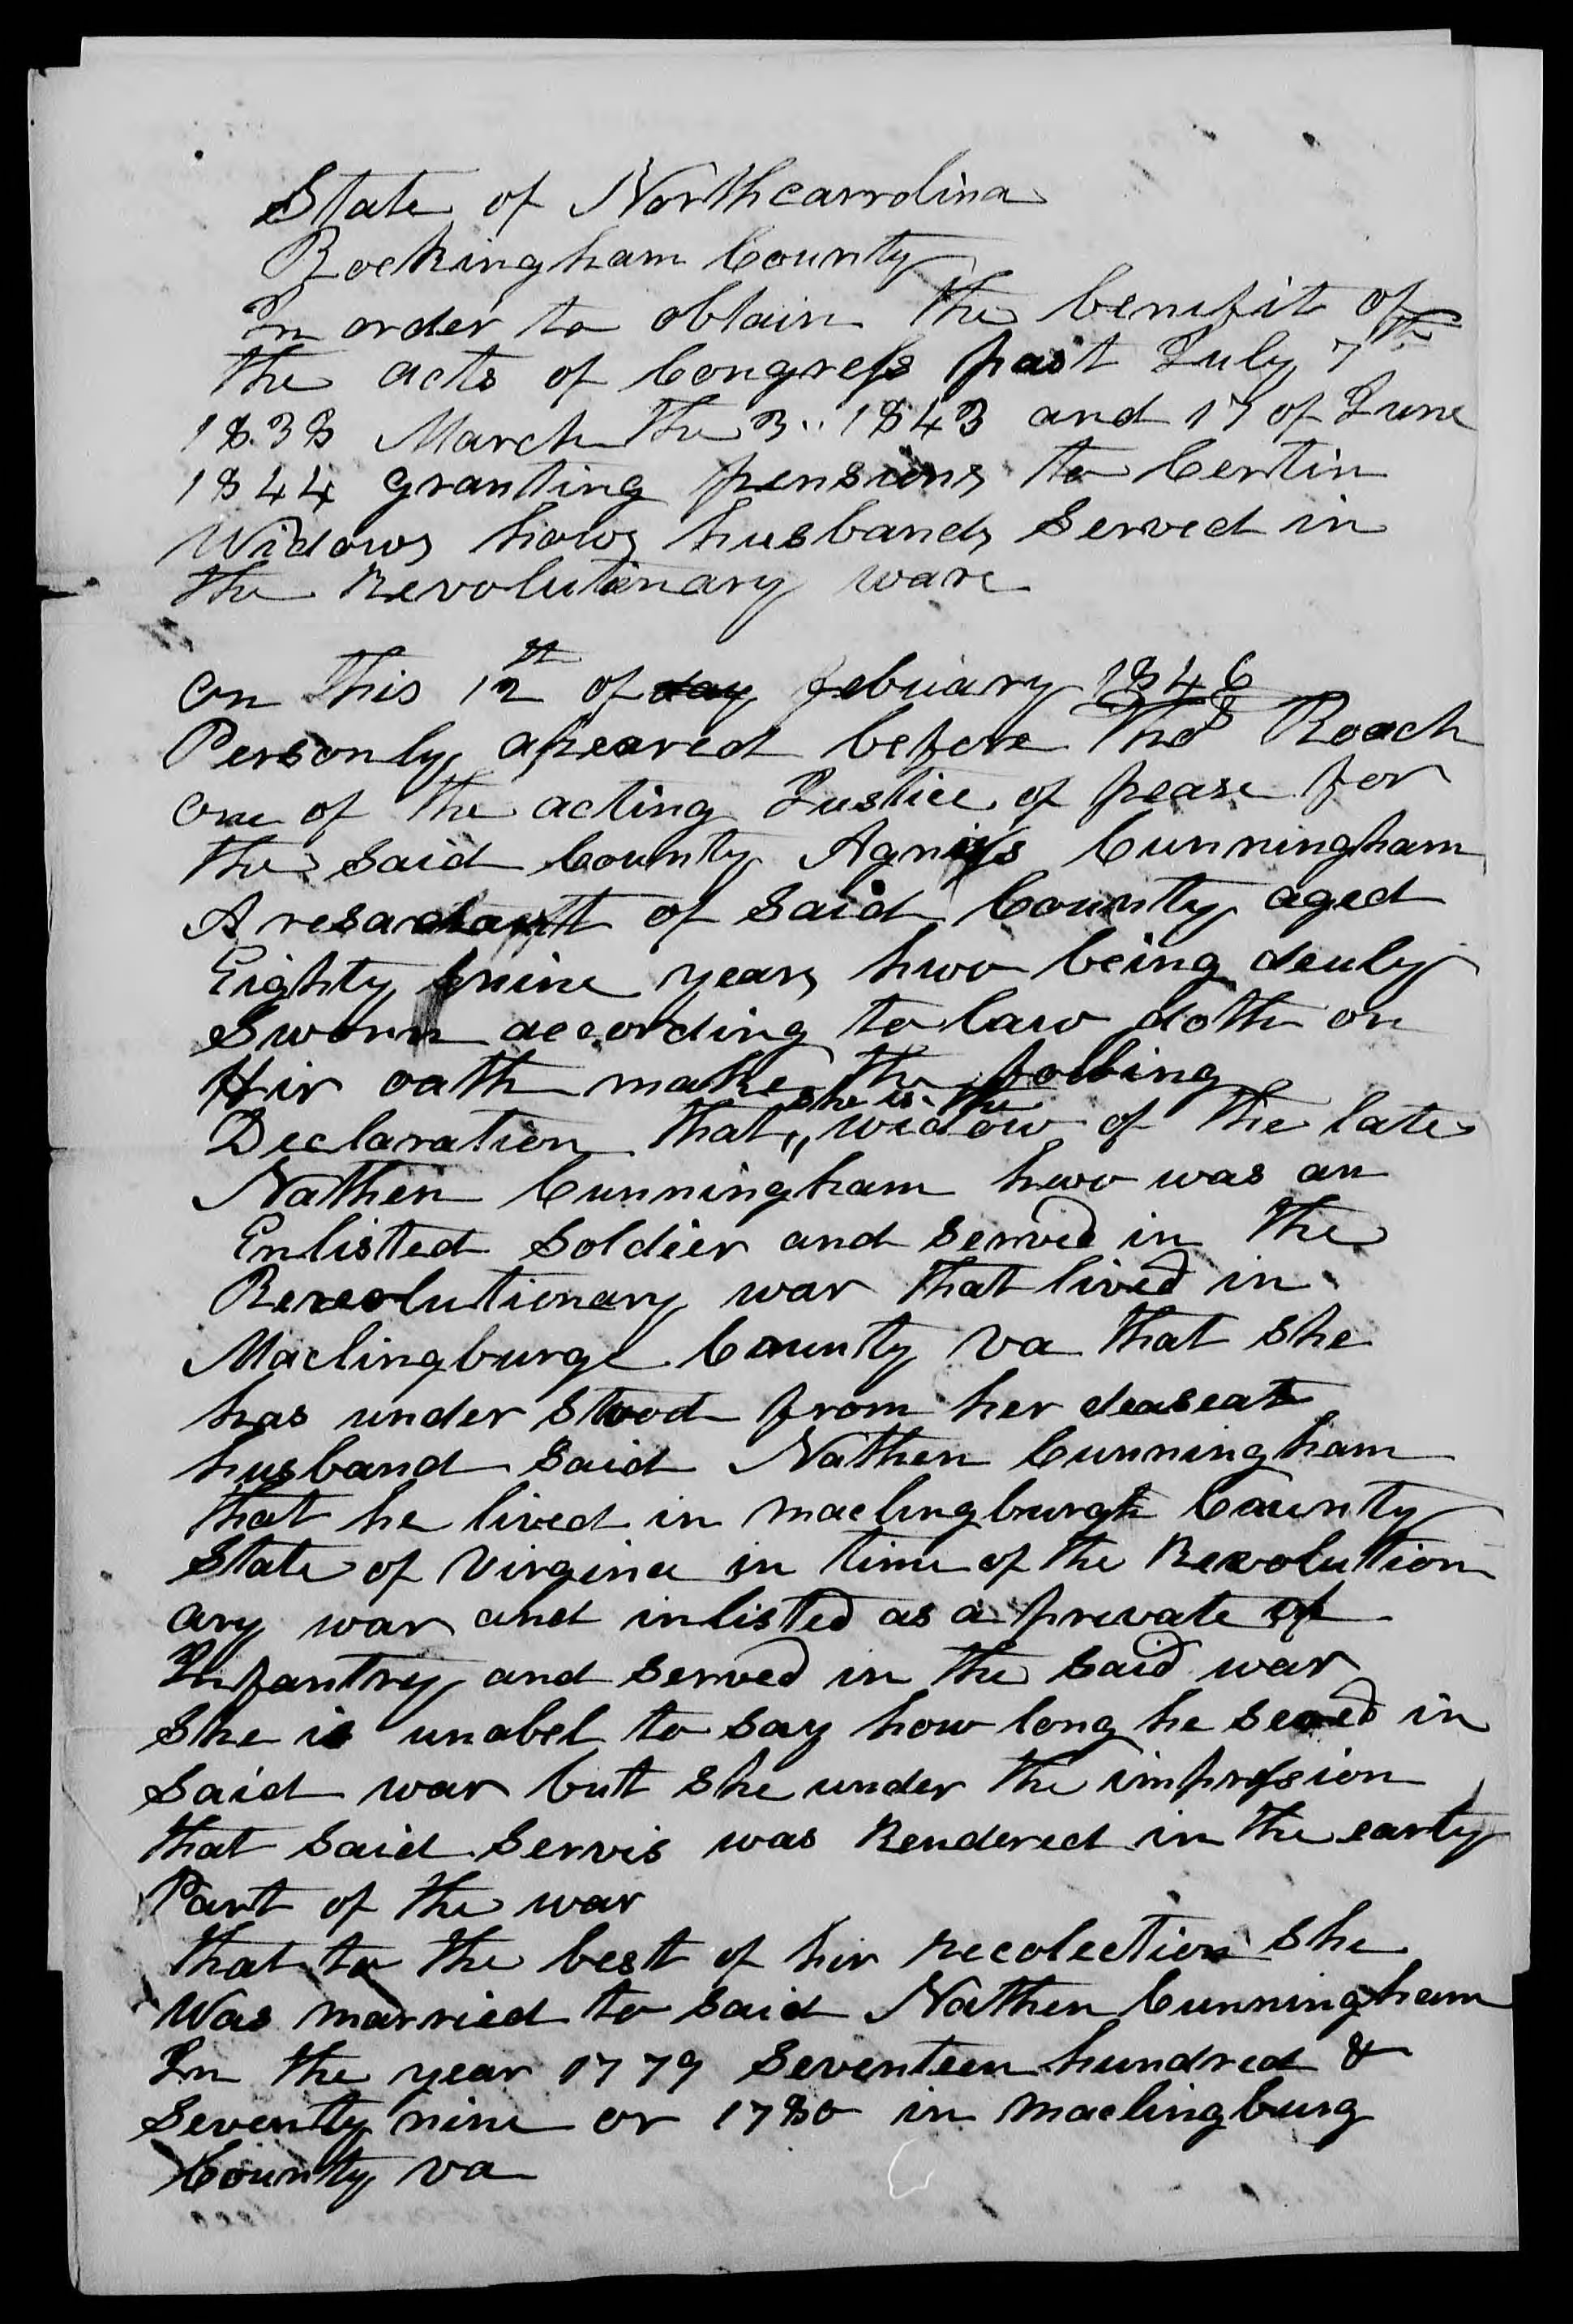 State of Northcarrolina
Rockingham County
In order to obtain the benifit of
the acts of Congress past July 7th
1838 March the 3.. 1843 and 17 of June
1844 granting pensions to Certin
Widows hows husbands Served in
the Revolutinary ware
on this 12th of day febuary 1846
Personly apeared before Thos Roach
one of the acting Justice of pease for
the said County Agniss Cunningham
A resadant of said County aged
Eighty nine years hwo being deuly
Sworn according to law doth on
Hir oath make the folling
she is the
Declaration that " widow of the late
Nathen Cunningham hwo was an
Enlisted Soldier and served in the
Revolutionary war that lived in
Maclingburge County va that she
has under stood from her deaseat
husband said Nathen Cunningham
that he lived in maclingburgh County
State of Virgina in time of the Revolution
ary war and inlisted as a private of
Infantry and served in the said war
She is unabel to say how long he served in
said war but she under the impression
that said servis was Rendered in the early
Part of the war
that to the best of hir recolection she
Was married to said Nathen Cunningham
In the year 1779 Seventeen hundred &
Seventy nine or 1780 in maclingburg
County va